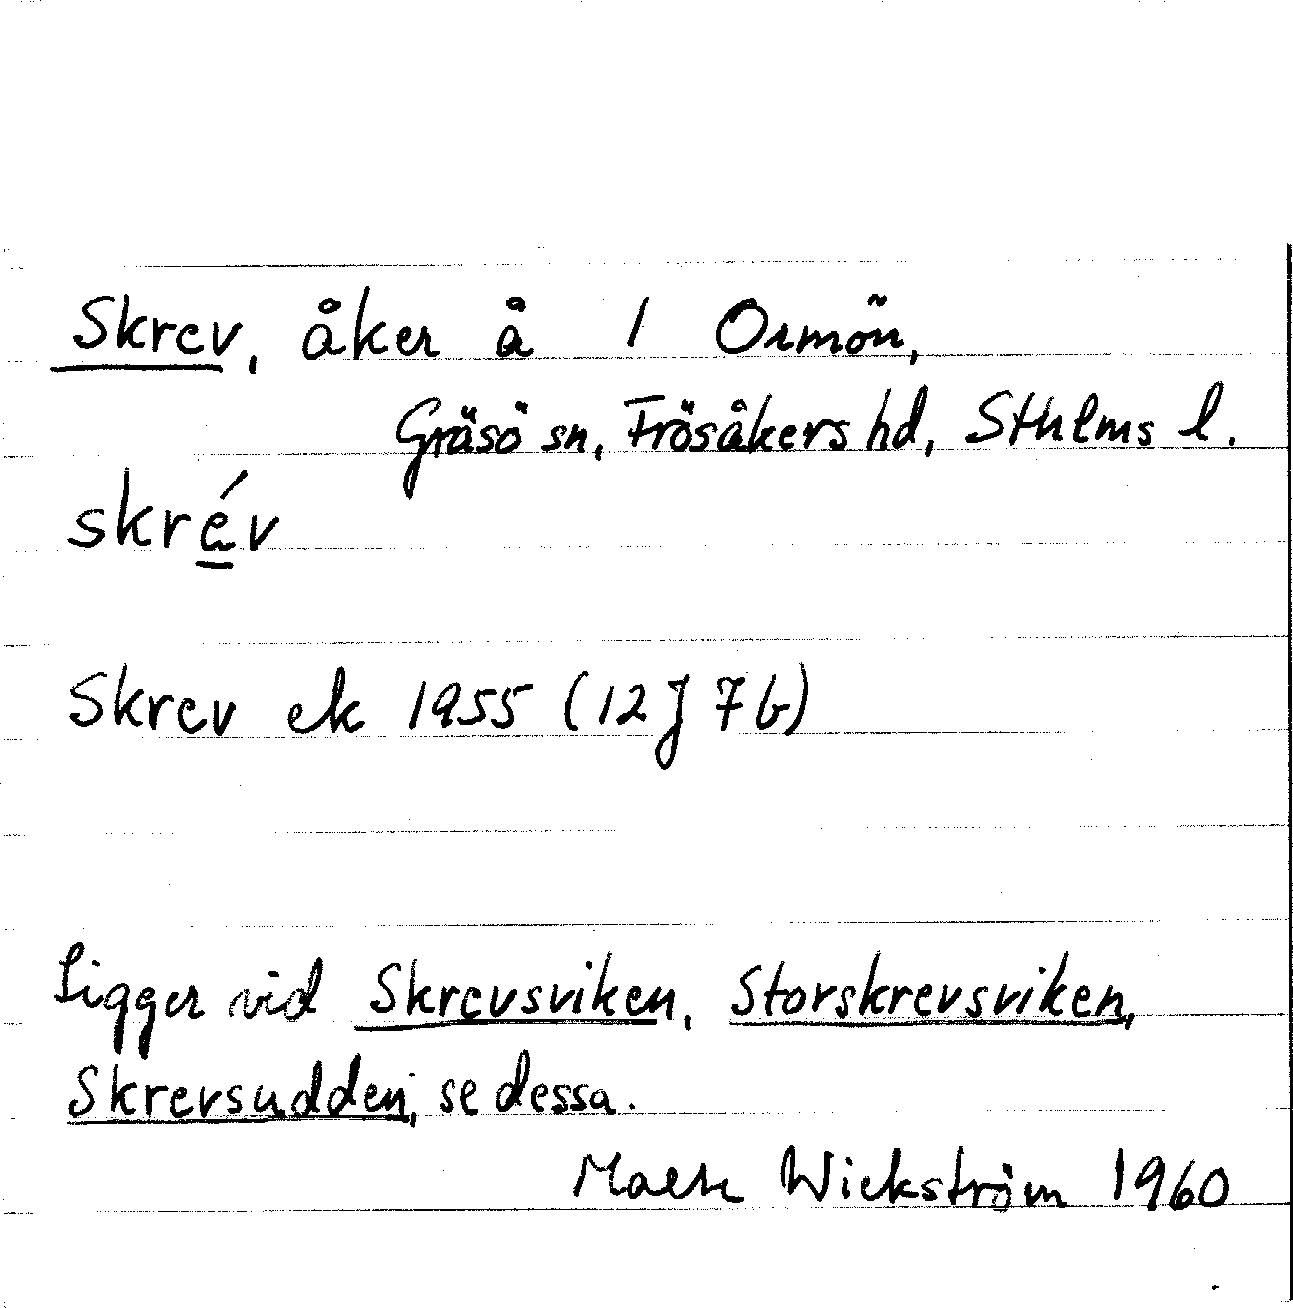 Skrev, åker å 1 Ormön,
Gräsö sn, Frösåkers hd, Sthlms l.
skrév
Skrev ek 1955 (12 J 7 b)
Ligger vid Skrevsviken, Storskrevsviken,
Skrevsudden, se dessa.
Wickström 1960